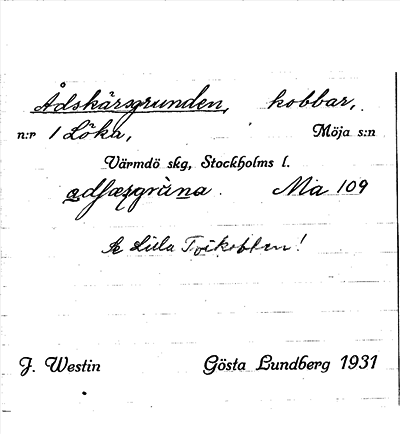 Ådskärsgrunden, kobbar,
n:r 1 Löka, Möja s:n
Värmdö skg, Stockholms l.
Ma 109
Se Lilla
J. Westin Gösta Lundberg 1931